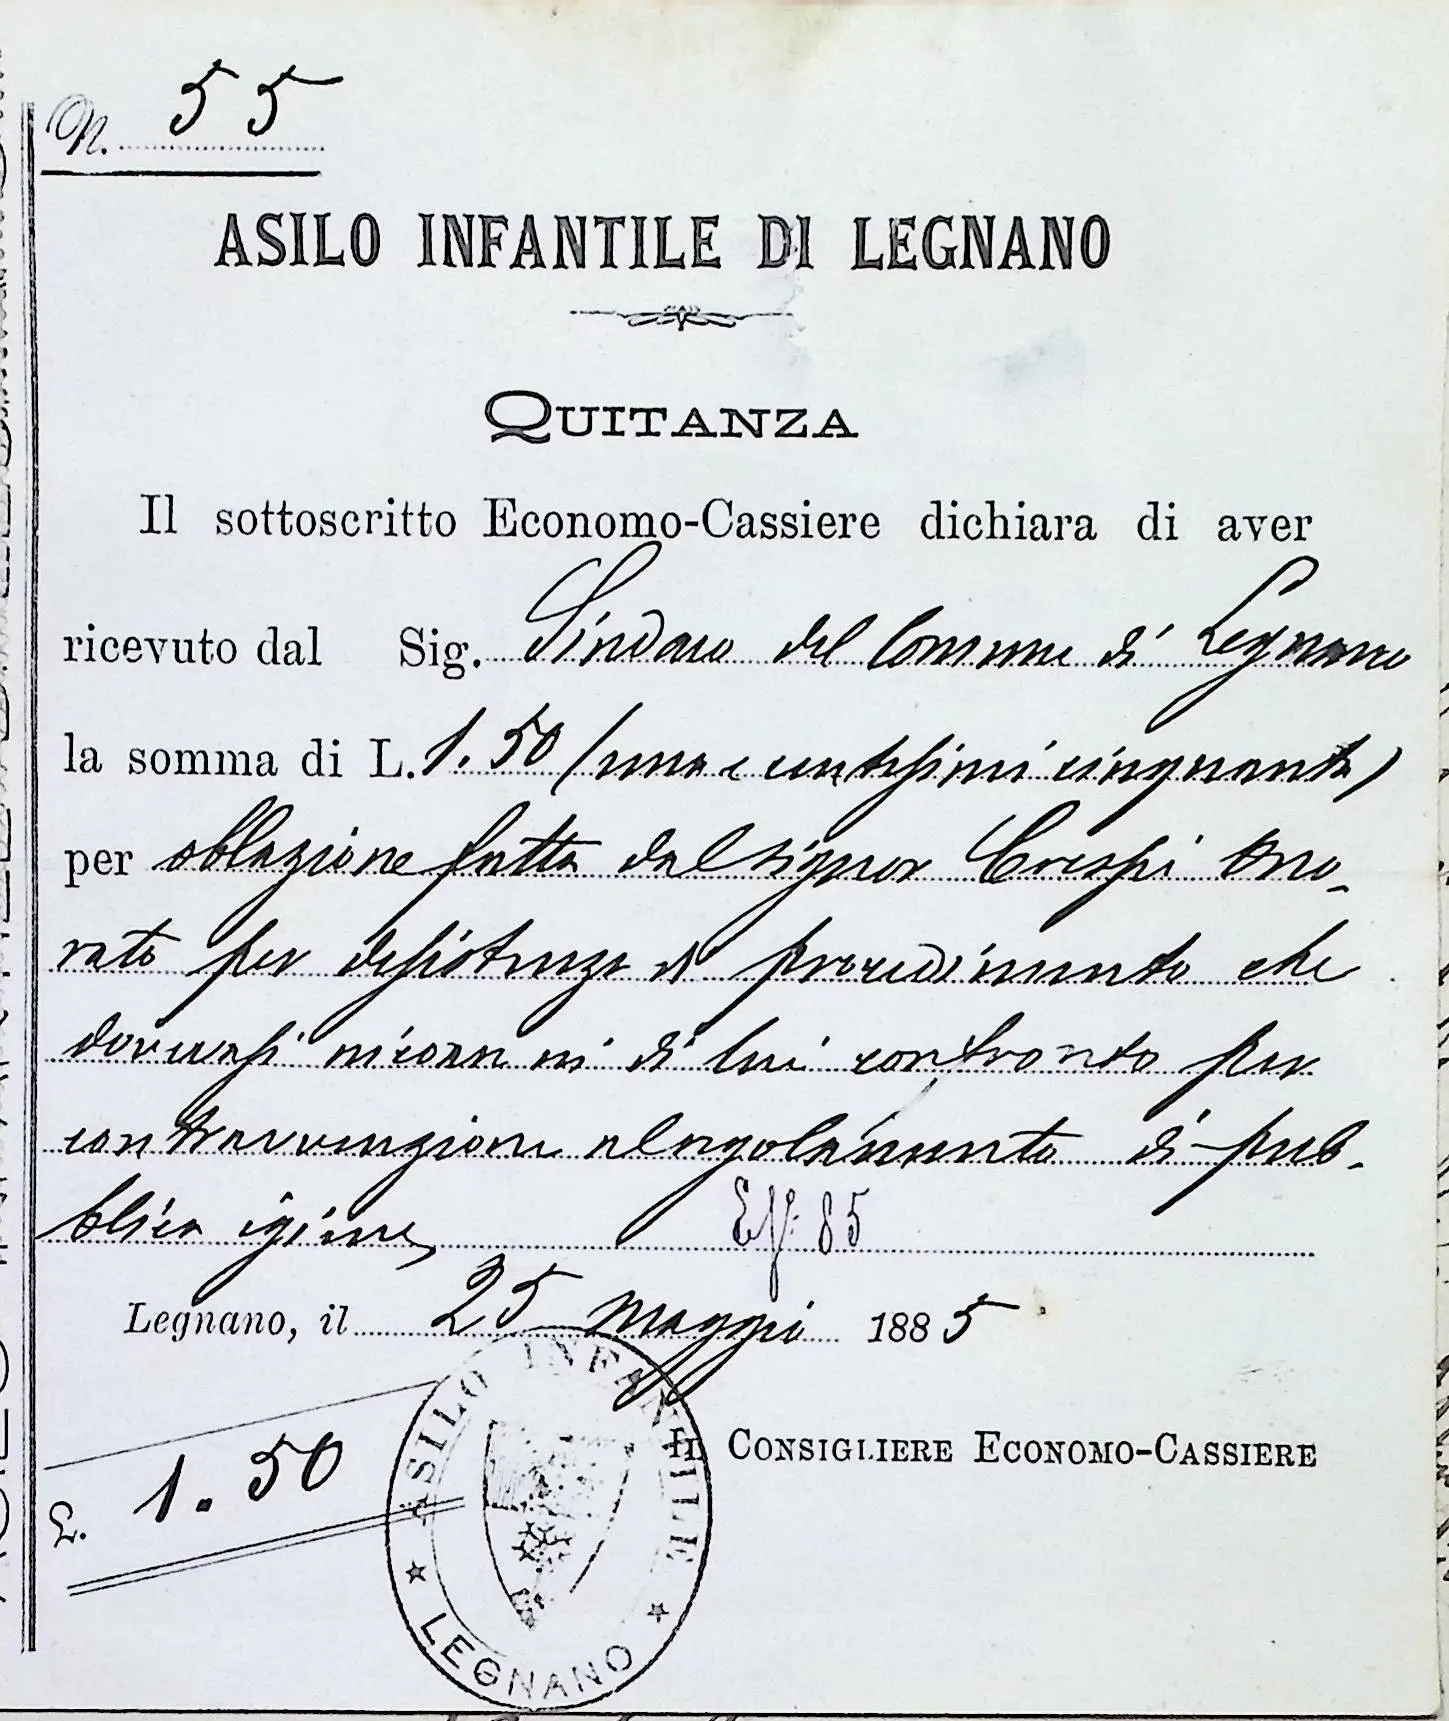 N. 55
ASILO INFANTILE DI LEGNANO
QUITANZA
Il sottoscritto Economo-Cassiere dichiara di aver
ricevuto dal Sig. Sindaco del Comune di Legnano
la somma di L. 1.50 (una e centesimi cinquanta)
per oblazione fatta dal signor Crespi Ono-
rato per desistenza di procedimento che
dovevasi iniziare in di lui confronto per
contravvenzione al regolamento di pub-
blica igiene,
Es. 85
Legnano, il 25 maggio 1885
IL CONSIGLIERE ECONOMO-CASSIERE
L. 1.50
ASILO INFANTILE
LEGNANO